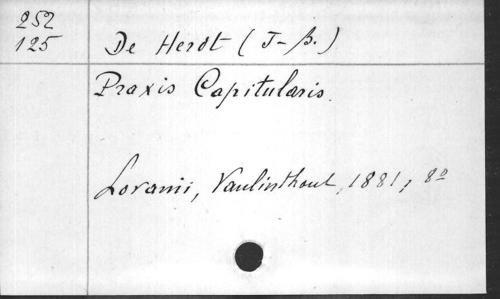 252
125
De Herdt (J-B.)
Praxis Capitularis.
Lovanii, Vanlinthout, 1881, 8º